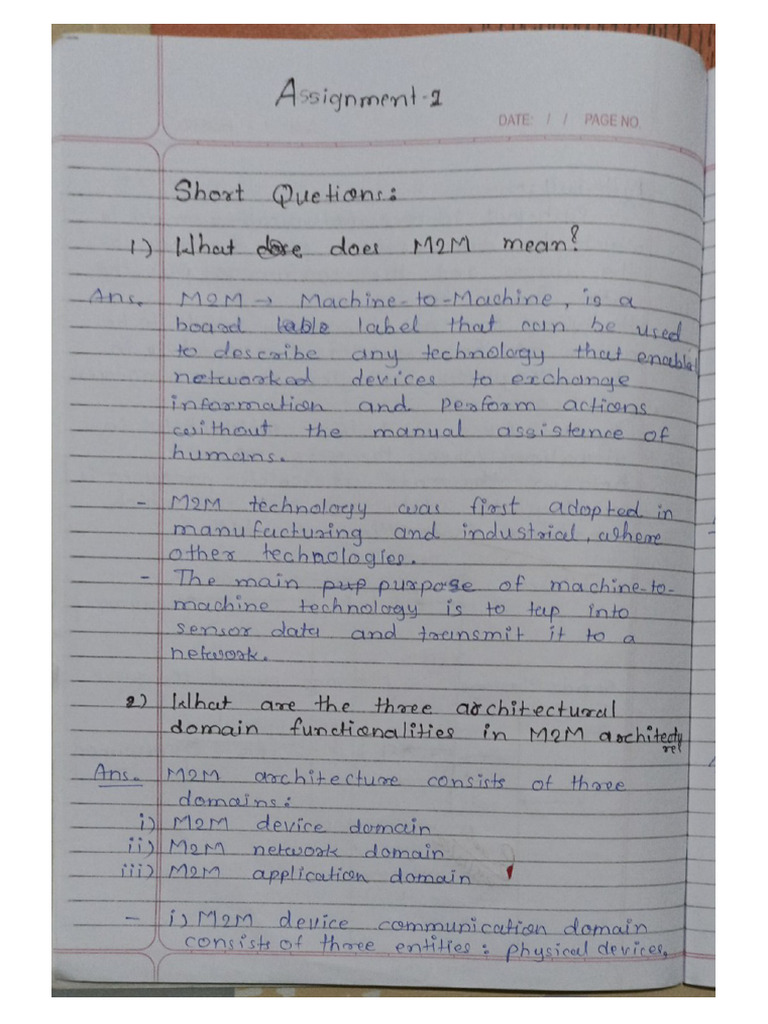 Assignment-2
DATE: / / PAGE NO.
Short Quetions:
1) What does M2M mean?
Ans. M2M → Machine-to-Machine, is a
board label that can be used
to describe any technology that enable
networked devices to exchange
information and perform actions
without the manual assistance of
humans.
- M2M technology was first adopted in
manufacturing and industrial, where
other technologies.
- The main purpose of machine-to-
machine technology is to tap into
sensor data and transmit it to a
network.
2) What are the three architectural
domain functionalities in M2M architectu
re?
Ans. M2M architecture consists of three
domains:
i) M2M device domain
ii) M2M network domain
iii) M2M application domain
- i) M2M device communication domain
consists of three entities: physical devices,